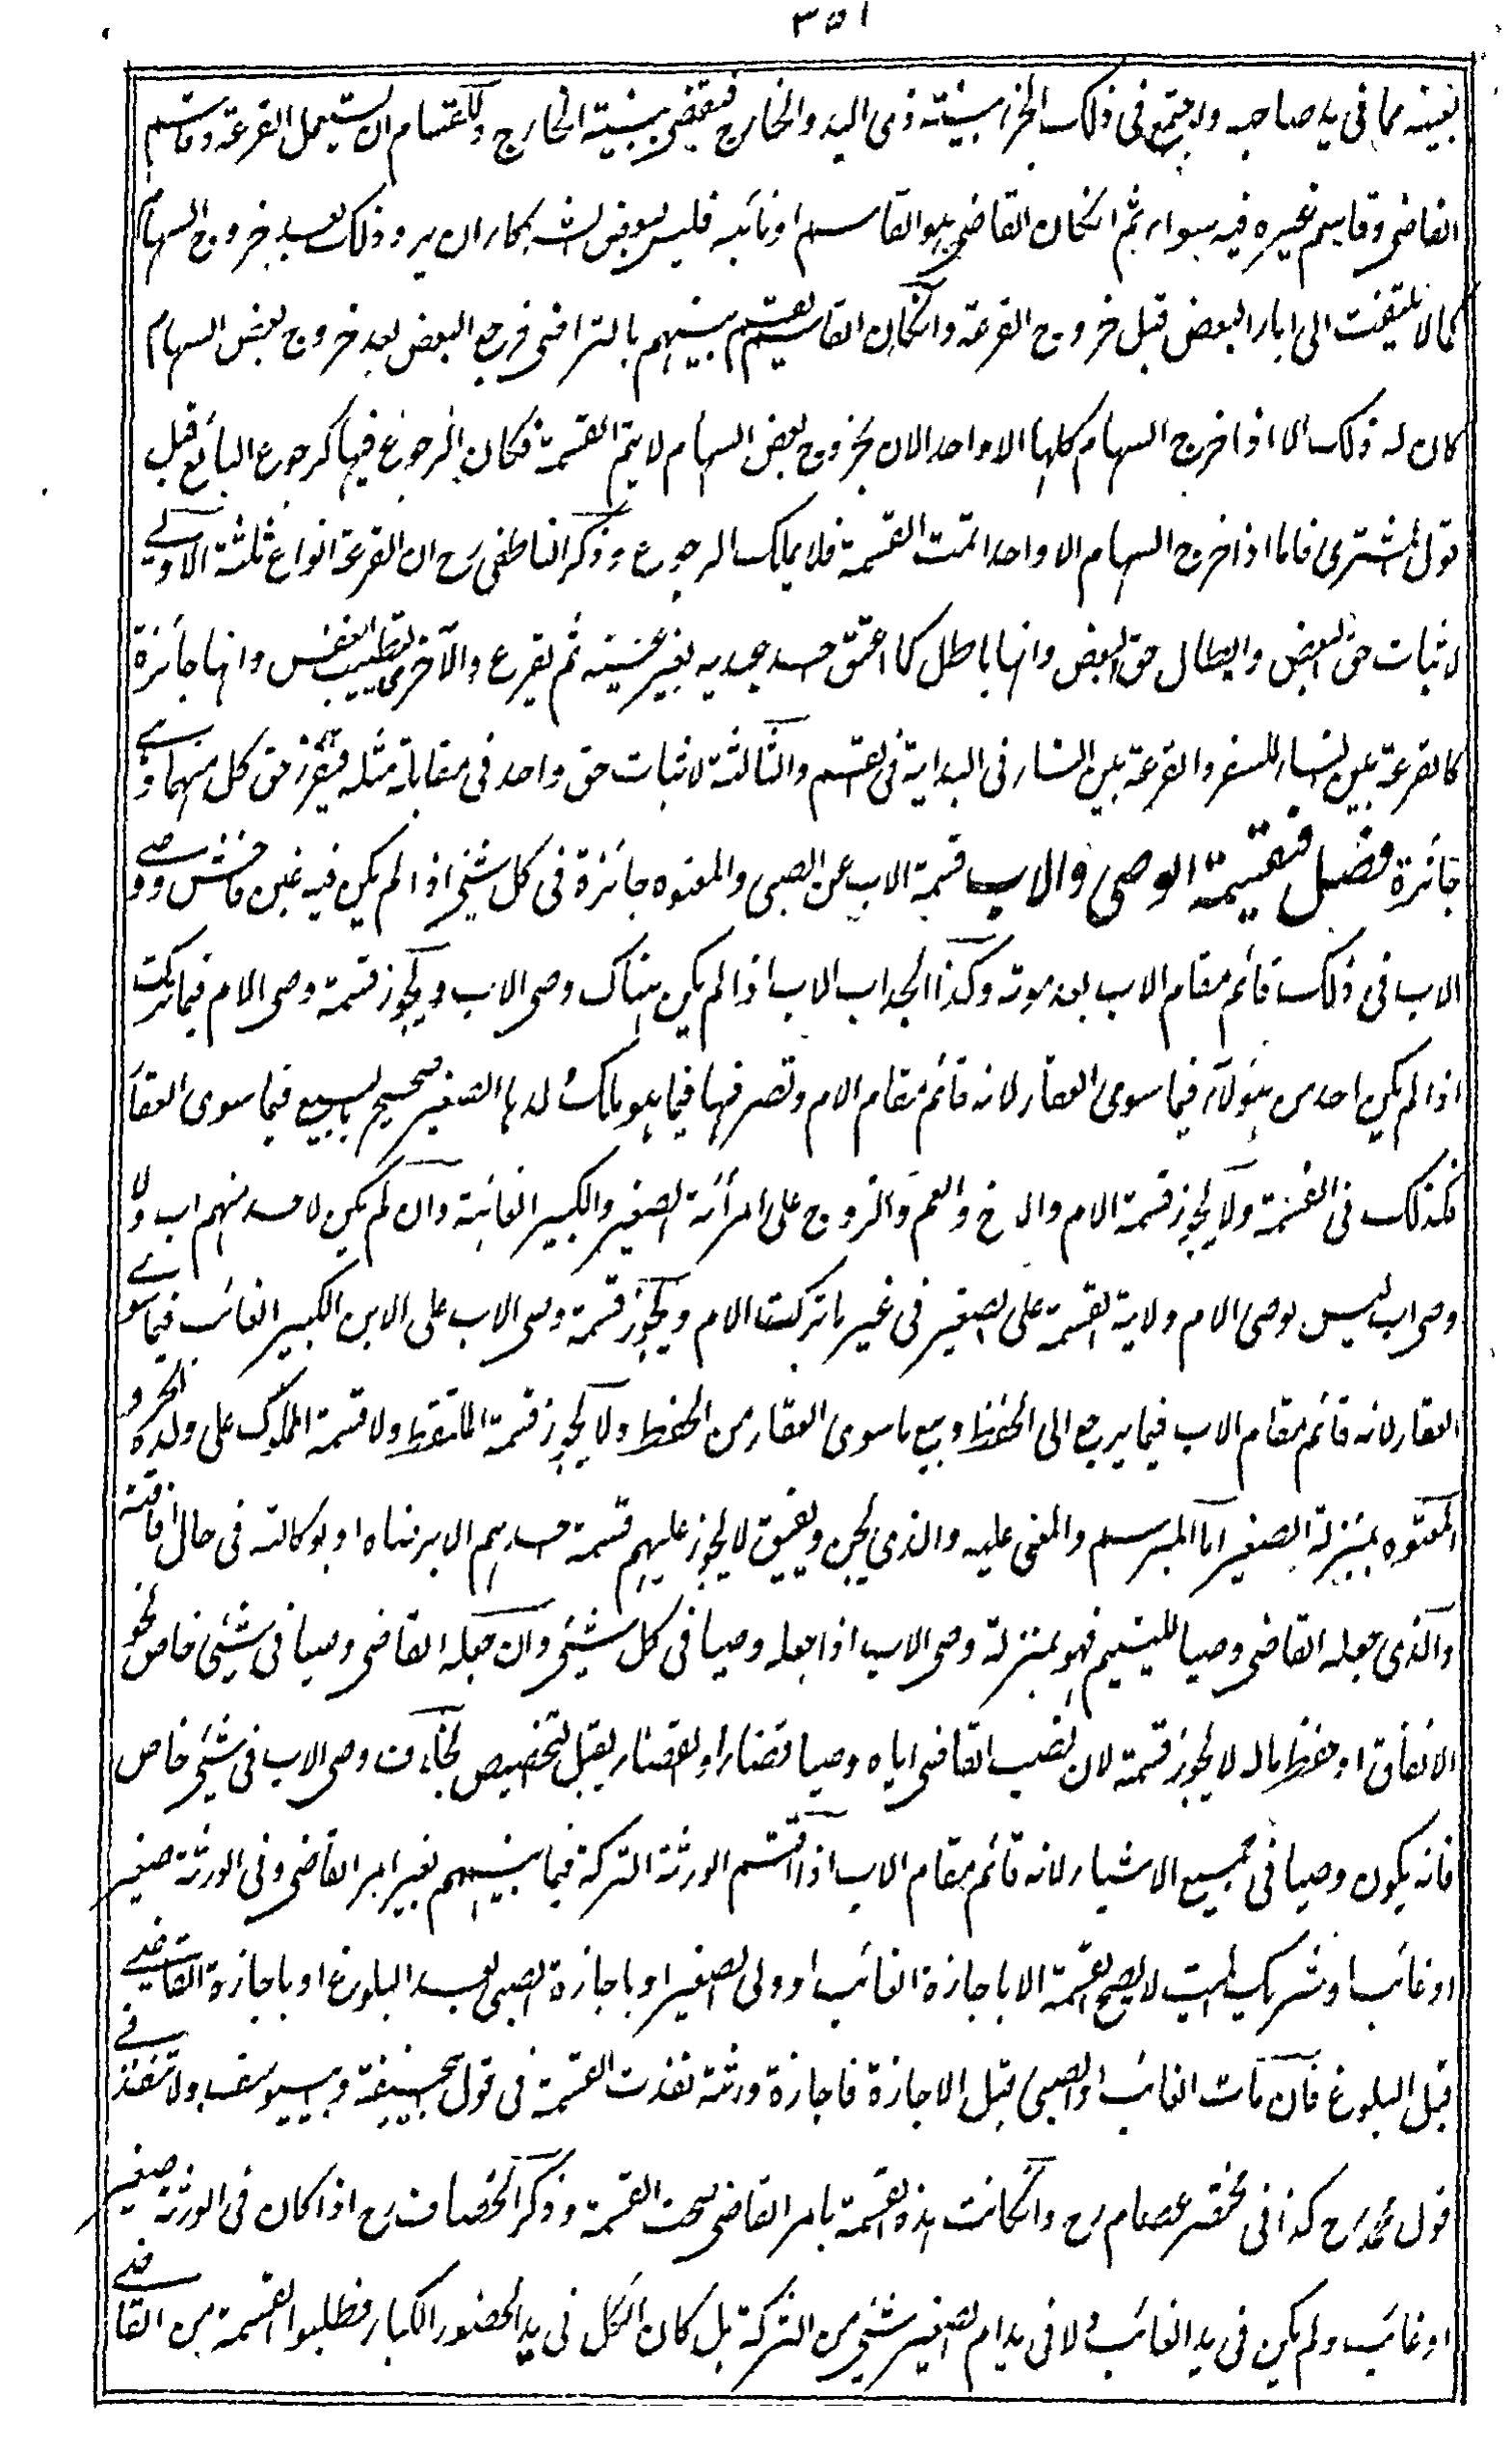 ٣٥١
بعينه مما فى يد صاحبه ولاجتمع فى ذلك الجزء بينة ذى اليد والخارج فيقضى ببينة الخارج وللقسام ان يستعمل القرعة وقاسم
القاضى وقاسم غيره فيه سواء ثم انكان القاضى هو القاسم او نائبه فليس لبعض الشركاء ان يرد ذلك بعد خروج السهام
كما لا يلتفت الى اباء البعض قبل خروج القرعة وانكان القاسم يقسم بينهم بالتراضى فرجع البعض بعد خروج بعض السهام
كان له ذلك الا اذا خرج السهام كلها الا واحدا لان بخروج بعض السهام لا يتم القسمة فكان الرجوع فيها كرجوع البائع قبل
قول المشترى فاما اذا خرج السهام الا واحدا تمت القسمة فلا يملك الرجوع وذكر الناطفى رح ان القرعة انواع ثلثة الاولى
لاثبات حق البعض وابطال حق البعض وانها باطل كما اعتق احد عبديه بغير عينه ثم يقرع والاخرى لتطييب النفس وانها جائزة
كالقرعة بين النساء للسفر والقرعة بين النساء فى البداية فى القسم والثالثة لاثبات حق واحد فى مقابلة مثله فيفرز حق كل منهما وهى
جائزة فصل فى قسمة الوصى والاب قسمة الاب عن الصبى والمعتوه جائزة فى كل شئ اذا لم يكن فيه غبن فاحش ووصى
الاب فى ذلك قائم مقام الاب بعد موته وكذا الجد اب الاب اذا لم يكن هناك وصى الاب ويجوز قسمة وصى الام فيما تركت
اذا لم يكن احد من هؤلاء فيما سوى العقار لانه قائم مقام الام وتصرفها فيما هو ملك ولدها الصغير صحيح بالبيع فيما سوى العقار
فكذلك فى القسمة ولا يجوز قسمة الام والاخ والعم والزوج على امرأته الصغير والكبير الغائبة وان لم يكن لاحد منهم اب ولا
وصى اب ليس لوصى الام ولاية القسمة على الصغير فى غير ما تركت الام ويجوز قسمة وصى الاب على الابن الكبير الغائب فيما سوى
العقار لانه قائم مقام الاب فيما يرجع الى الحفظ وبيع ما سوى العقار من الحفظ ولا يجوز قسمة الملتقط ولا قسمة المملوك على ولده الحر و
المعتوه بمنزلة الصغير اما المبرسم والمغمى عليه والذى يجن ويفيق لا يجوز عليهم قسمة احدهم الا برضاه او بوكالته فى حال افاقته
والذى جعله القاضى وصيا لليتيم فهو بمنزلة وصى الاب اذا جعله وصيا فى كل شئ وان جعله القاضى وصيا فى شئ خاص نحو
الانفاق او حفظ مال لا يجوز قسمته لان نصب القاضى اياه وصيا قضاء والقضاء يقبل التخصيص بخلاف وصى الاب فى شئ خاص
فانه يكون وصيا فى جميع الاشياء لانه قائم مقام الاب اذا اقتسم الورثة التركة فيما بينهم بغير امر القاضى وفى الورثة صغير
او غائب او شريك الميت لا يصح القسمة الا باجازة الغائب او ولى الصغير او باجازة الصبى بعد البلوغ او باجازة القاضى
قبل البلوغ فان مات الغائب او الصبى قبل الاجازة فاجازة ورثته نفذت القسمة فى قول ابيحنيفة وابييوسف ولا تنفذ فى
قول محمد رح كذا فى مختصر عصام رح وانكانت هذه القسمة بامر القاضى صحت القسمة وذكر الخصاف رح اذا كان فى الورثة صغير
او غائب ولم يكن فى يد الغائب ولا فى يد ام الصغير شئ من التركة بل كان الكل فى يد الحضور الكبار فطلبوا القسمة من القاضى